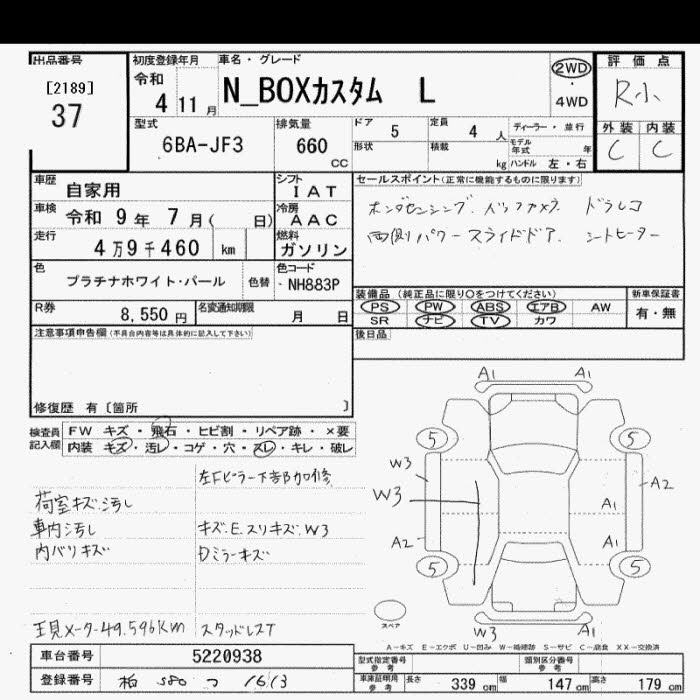 出品番号 初度登録年月 車名・グレード 評価点
[2189] 37
令和 4 11月
N_BOXカスタム L
2WD ・ 4WD
R小
型式 6BA-JF3
排気量 660 CC
ドア 5 定員 4 人 ディーラー・並行
形状 積載 kg モデル年式 年
ハンドル 左・右
外装 内装
C C
車歴 自家用
シフト IAT
セールスポイント(正常に機能するものに限ります)
車検 令和 9年 7月( 日)
冷房 AAC
ホンダセンシング. バックカメラ ドラレコ
走行 4万9千460 km
燃料 ガソリン
両側パワースライドドア. シートヒーター
色 プラチナホワイト・パール 色替
色コード NH883P
装備品(純正品に限り○をつけてください) 新車保証書
PS PW ABS エアB AW 有・無
SR ナビ TV カワ
R券 8,550円 名変通知期限 月 日
後日品
注意事項申告欄(不具合内容等は具体的に記入して下さい)
修復歴 有〔箇所 〕
検査員記入欄
FW キズ・飛石・ヒビ割・リペア跡・×要
内装 キズ・汚レ・コゲ・穴・スレ・キレ・破レ
左Fピラー下部加修
荷室キズ.汚レ
車内汚レ キズ.E.スリキズ.W3
内バリキズ Dミラーキズ
現メーター49.596Km スタッドレスT
A1 A1
5 5
W3 A2
W3 A1
A2 A1
5 5
W3 A1
スペア
A-キズ E-エクボ U-凹み W-補修跡 S-サビ C-腐食 XX-交換済
車台番号 5220938
型式指定番号 参考 類別区分番号 参考
登録番号 柏 580 つ 1613
車庫証明用 参考 長さ 339 cm 幅 147 cm 高さ 179 cm